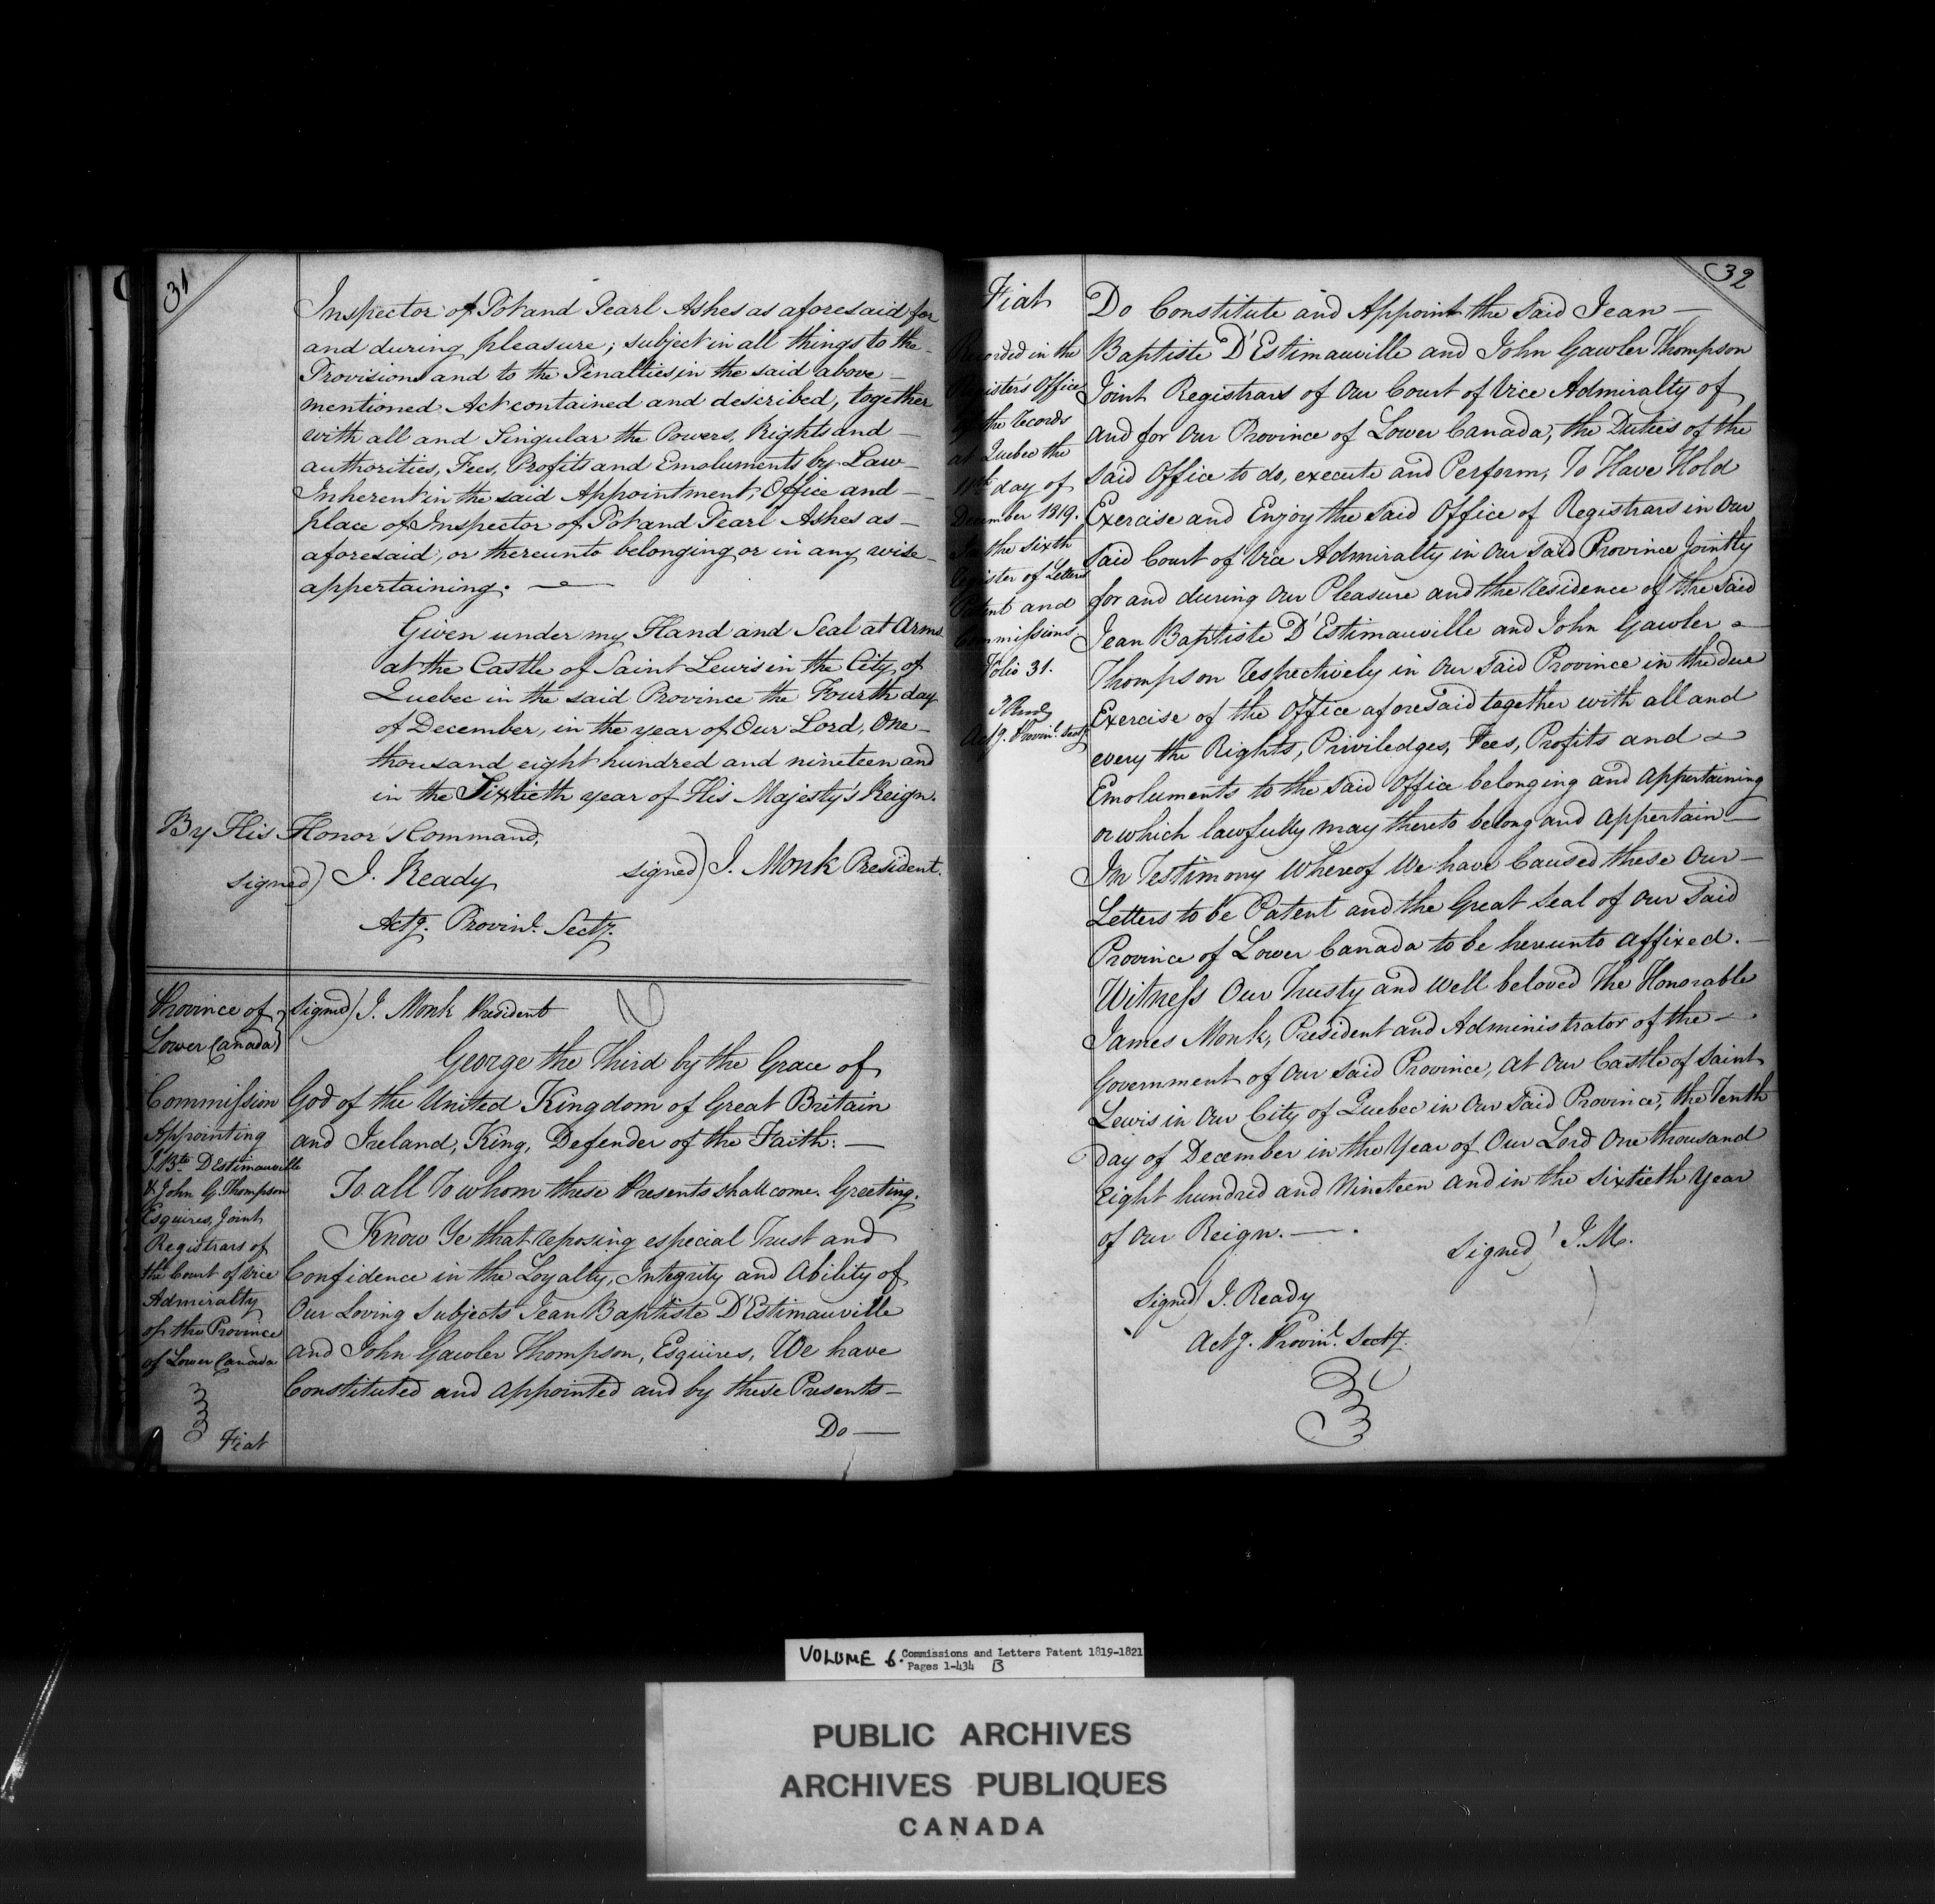 31
Inspector of Pot and Pearl Ashes as aforesaid for
and during pleasure; subject in all things to the
Provisions and to the Penalties in the said above
mentioned Act contained and described, together
with all and Singular the Powers, Rights and
authorities, Fees, Profits and Emoluments by Law
Inherent in the said Appointment, Office and
place of Inspector of Pot and Pearl Ashes as
aforesaid, or thereunto belonging or in any wise
appertaining.
Given under my Hand and Seal at Arms
at the Castle of Saint Lewis in the City of
Quebec in the said Province the Fourth day
of December, in the year of Our Lord, One
thousand eight hundred and nineteen and
in the Sixtieth year of His Majesty's Reign.
By His Honor's Command,
signed) J. Monk President.
signed) J. Ready
Actg. Provinl. Secty.
Province of
Lower Canada}
Commission
Appointing
J. Bte. D'Estimauville
& John G. Thompson
Esquires, Joint
Registrars of
the Court of Vice
Admiralty
of the Province
of Lower Canada
Fiat
signed) J. Monk President
George the Third by the Grace of
God of the United Kingdom of Great Britain
and Ireland, King, Defender of the Faith:
To all To whom these Presents shall come. Greeting.
Know Ye that reposing especial Trust and
Confidence in the Loyalty, Integrity and Ability of
Our Loving Subjects Jean Baptiste D'Estimauville
and John Gawler Thompson, Esquires, We have
Constituted and appointed and by these Presents
Do
32
Fiat
Recorded in the
Registers Office
of the Records
at Quebec the
11th day of
December 1819.
In the sixth
Register of Letters
Patent and
Commissions
Folio 31.
J Ready
Actg. Provinl. Secty
Do Constitute and Appoint the said Jean
Baptiste D'Estimauville and John Gawler Thompson
Joint Registrars of Our Court of Vice Admiralty of
and for Our Province of Lower Canada, the Duties of the
said Office to do, execute and Perform, To Have Hold
Exercise and Enjoy the said Office of Registrars in Our
said Court of Vice Admiralty in Our said Province Jointly
for and during Our Pleasure and the residence of the said
Jean Baptiste D'Estimauville and John Gawler
Thompson respectively in Our said Province in the due
Exercise of the Office aforesaid together with all and
every the Rights, Priviledges, Fees, Profits and
Emoluments to the said Office belonging and appertaining
or which lawfully may thereto belong and appertain
In Testimony Whereof We have Caused these Our
Letters to be Patent and the Great Seal of Our said
Province of Lower Canada to be hereunto affixed.
Witness Our Trusty and Well beloved The Honorable
James Monk, President and Administrator of the
Government of Our said Province, at Our Castle of Saint
Lewis in Our City of Quebec in Our said Province, the Tenth
day of December in the Year of Our Lord One thousand
Eight hundred and Nineteen and in the Sixtieth Year
of Our Reign.
signed) J.M.
signed) J. Ready
Actg. Provinl. Secty.
VOLUME 6. Commissions and Letters Patent 1819-1821
Pages 1-434 B
PUBLIC ARCHIVES
ARCHIVES PUBLIQUES
CANADA